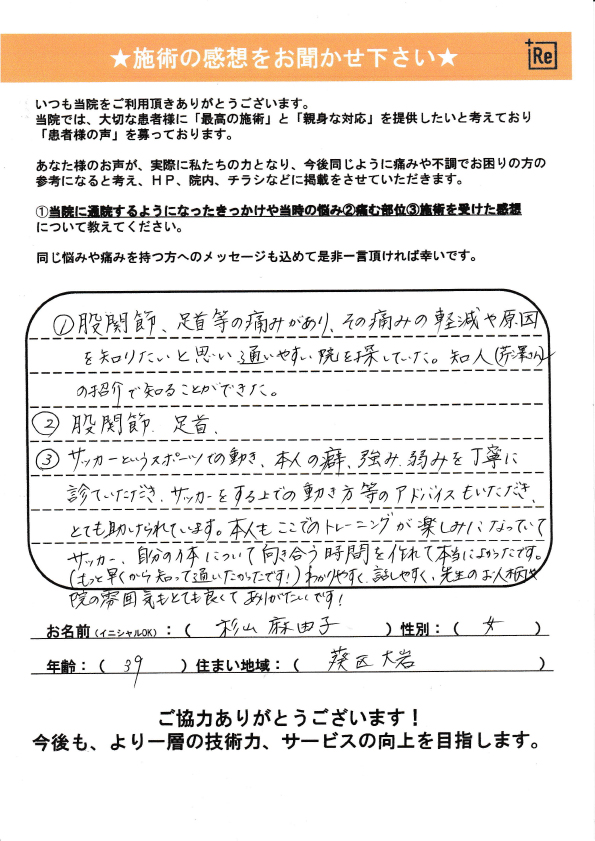 ★施術の感想をお聞かせ下さい★
+Re
いつも当院をご利用頂きありがとうございます。
当院では、大切な患者様に「最高の施術」と「親身な対応」を提供したいと考えており
「患者様の声」を募っております。
あなた様のお声が、実際に私たちの力となり、今後同じように痛みや不調でお困りの方の
参考になると考え、HP、院内、チラシなどに掲載をさせていただきます。
①当院に通院するようになったきっかけや当時の悩み②痛む部位③施術を受けた感想
について教えてください。
同じ悩みや痛みを持つ方へのメッセージも込めて是非一言頂ければ幸いです。
①股関節、足首等の痛みがあり、その痛みの軽減や原因
を知りたいと思い通いやすい院を探していた。知人(芹澤さん)
の紹介で知ることができた。
②股関節、足首、
③サッカーというスポーツでの動き、本人の癖、強み、弱みを丁寧に
診ていただき、サッカーをする上での動き方等のアドバイスもいただき、
とても助けられています。本人もここでのトレーニングが楽しみになっていて
サッカー、自分の体について向き合う時間を作れて本当によかったです。
(もっと早くから知って通いたかったです!)わかりやすく、話しやすく、先生のお人柄や
院の雰囲気もとても良くてありがたいです!
お名前(イニシャルOK):( 杉山 麻由子 )性別:( 女 )
年齢:( 39 )住まい地域:( 葵区 大岩 )
ご協力ありがとうございます!
今後も、より一層の技術力、サービスの向上を目指します。